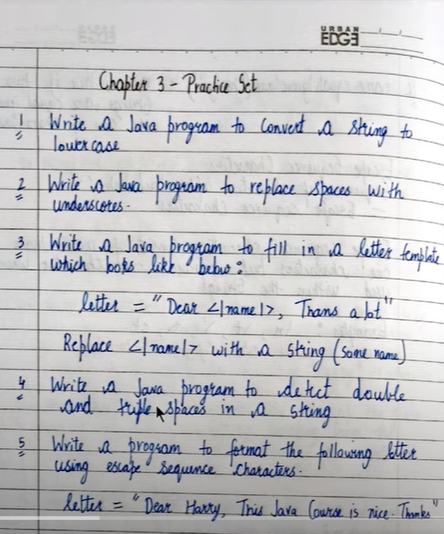 URBAN
EDGE
Chapter 3 - Practice Set
1 Write a Java program to Convert a string to
lowercase
2 Write a Java program to replace spaces with
underscores.
3 Write a Java program to fill in a letter template
which looks like below:
letter = "Dear <|name|>, Thanks a lot"
Replace <|name|> with a string (some name)
4 Write a Java program to detect double
and triple spaces in a string
5 Write a program to format the following letter
using escape sequence characters.
letter = "Dear Harry, This Java Course is nice. Thanks"